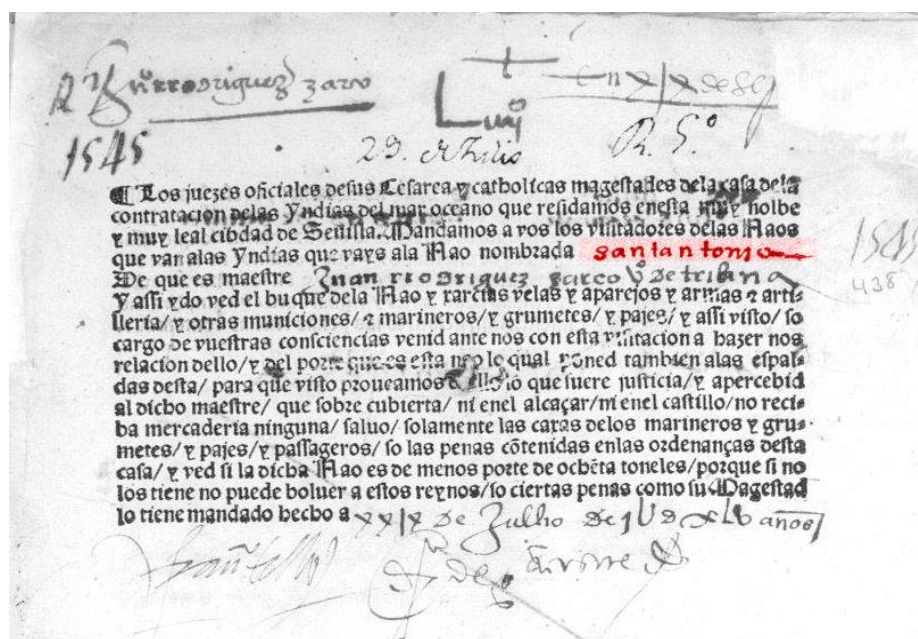 Rodriguez zarco
1545
29. de Julio
¶ Los juezes oficiales de sus Cesarea y catholicas magestades dela casa dela
contratacion delas Yndias del mar oceano que residimos enesta muy nolbe
y muy leal cibdad de Seuilla. Mandamos a vos los visitadores delas Naos
que van alas Yndias que vays ala Nao nombrada santantonio
De que es maestre Juan rrodriguez sarco vº de triana
Y assi ydo ved el buque dela Nao y xarcias velas y aparejos y armas ⁊ arti-
lleria/ y otras municiones/ ⁊ marineros/ y grumetes/ y pajes/ y assi visto/ so
cargo de vuestras consciencias venid ante nos con esta visitacion a hazer nos
relacion dello/ y del porte que es esta nao lo qual poned tambien alas espal-
das desta/ para que visto proueamos dello lo que fuere justicia/ y apercebid
al dicho maestre/ que sobre cubierta/ ni enel alcaçar/ ni enel castillo/ no reci-
ba mercaderia ninguna/ saluo/ solamente las caxas delos marineros y gru-
metes/ y pajes/ y passageros/ so las penas cõtenidas enlas ordenanças desta
casa/ y ved si la dicha Nao es de menos porte de ochẽta toneles/ porque si no
los tiene no puede boluer a estos reynos/ so ciertas penas como su Magestad
lo tiene mandado hecho a xxix de Julho de años
1545
438